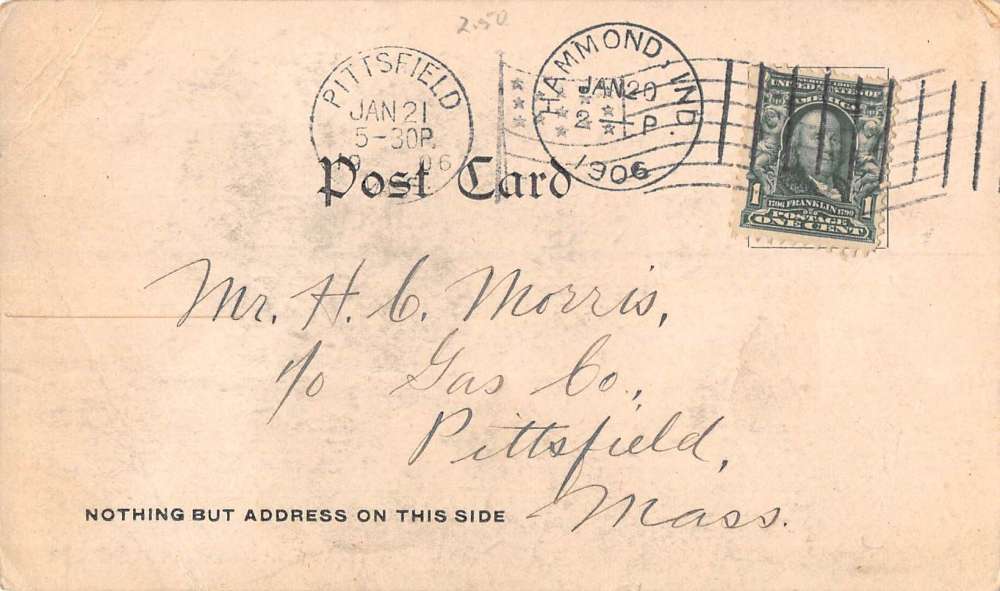 2.50
PITTSFIELD
JAN 21
5-30P.
1906
HAMMOND, IND.
JAN 20
2 - P
1906
Post Card
SERIES 1902
UNITED STATES OF
AMERICA
1 1
1706 FRANKLIN 1790
POSTAGE
ONE CENT
Mr. H. C. Morris,
c/o Gas Co.,
Pittsfield,
Mass.
NOTHING BUT ADDRESS ON THIS SIDE